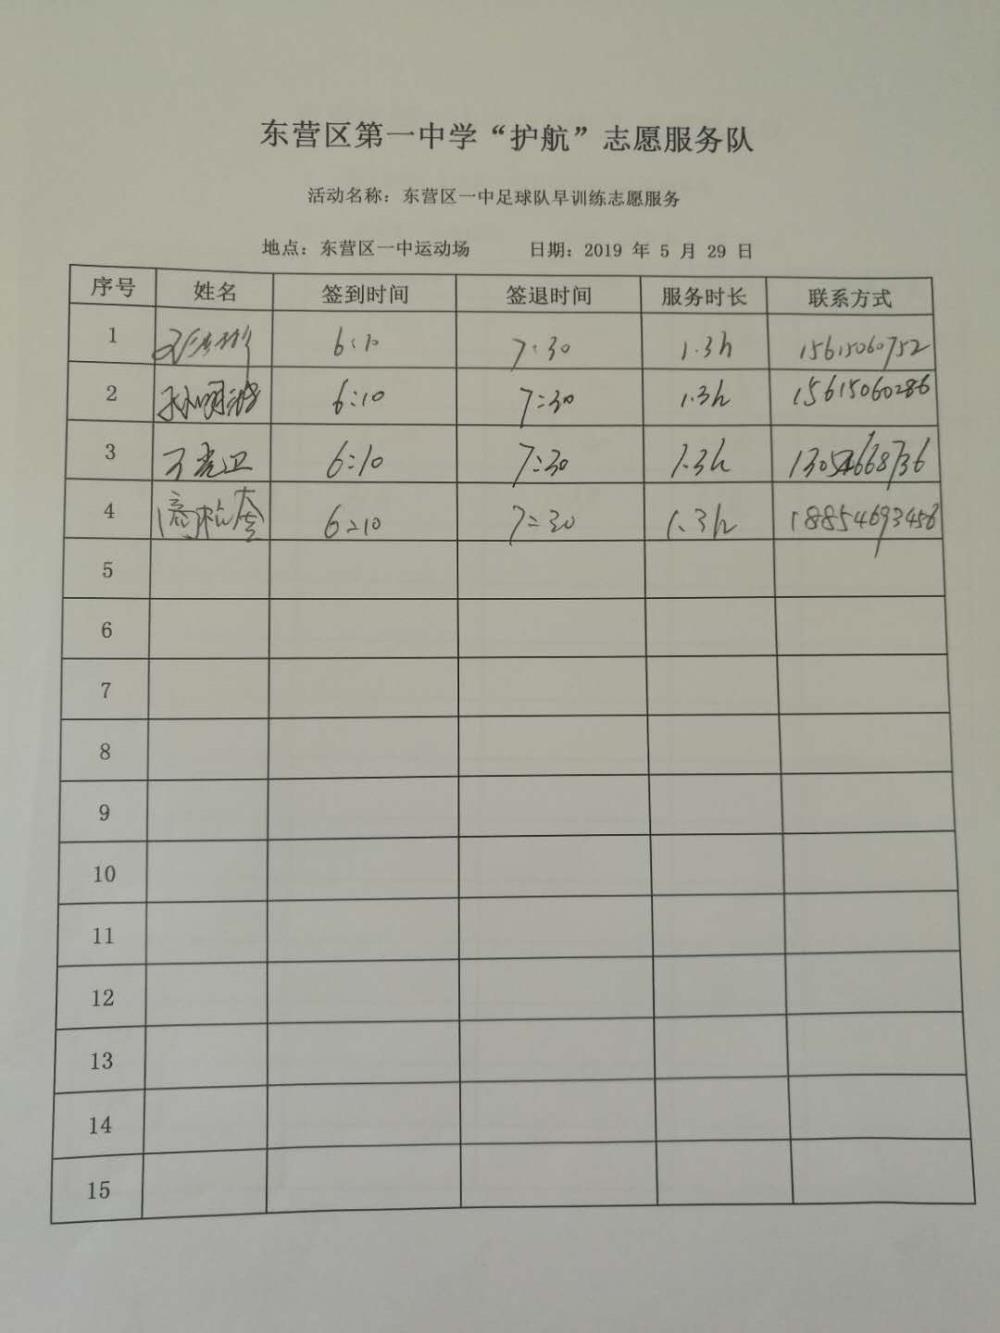 东营区第一中学“护航”志愿服务队
活动名称：东营区一中足球队早训练志愿服务
地点：东营区一中运动场 日期：2019 年 5 月 29 日
序号 姓名 签到时间 签退时间 服务时长 联系方式
1 6:10 7:30 1.3h 15615060752
2 孙明 6:10 7:30 1.3h 15615060286
3 6:10 7:30 1.3h
4 6:10 7:30 1.3h 18854693456
5
6
7
8
9
10
11
12
13
14
15